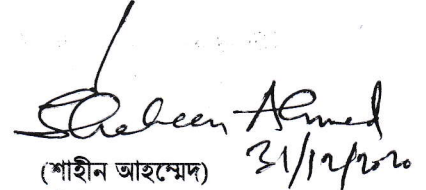 Shaheen Ahmed
(শাহীন আহম্মেদ) 31/12/2020